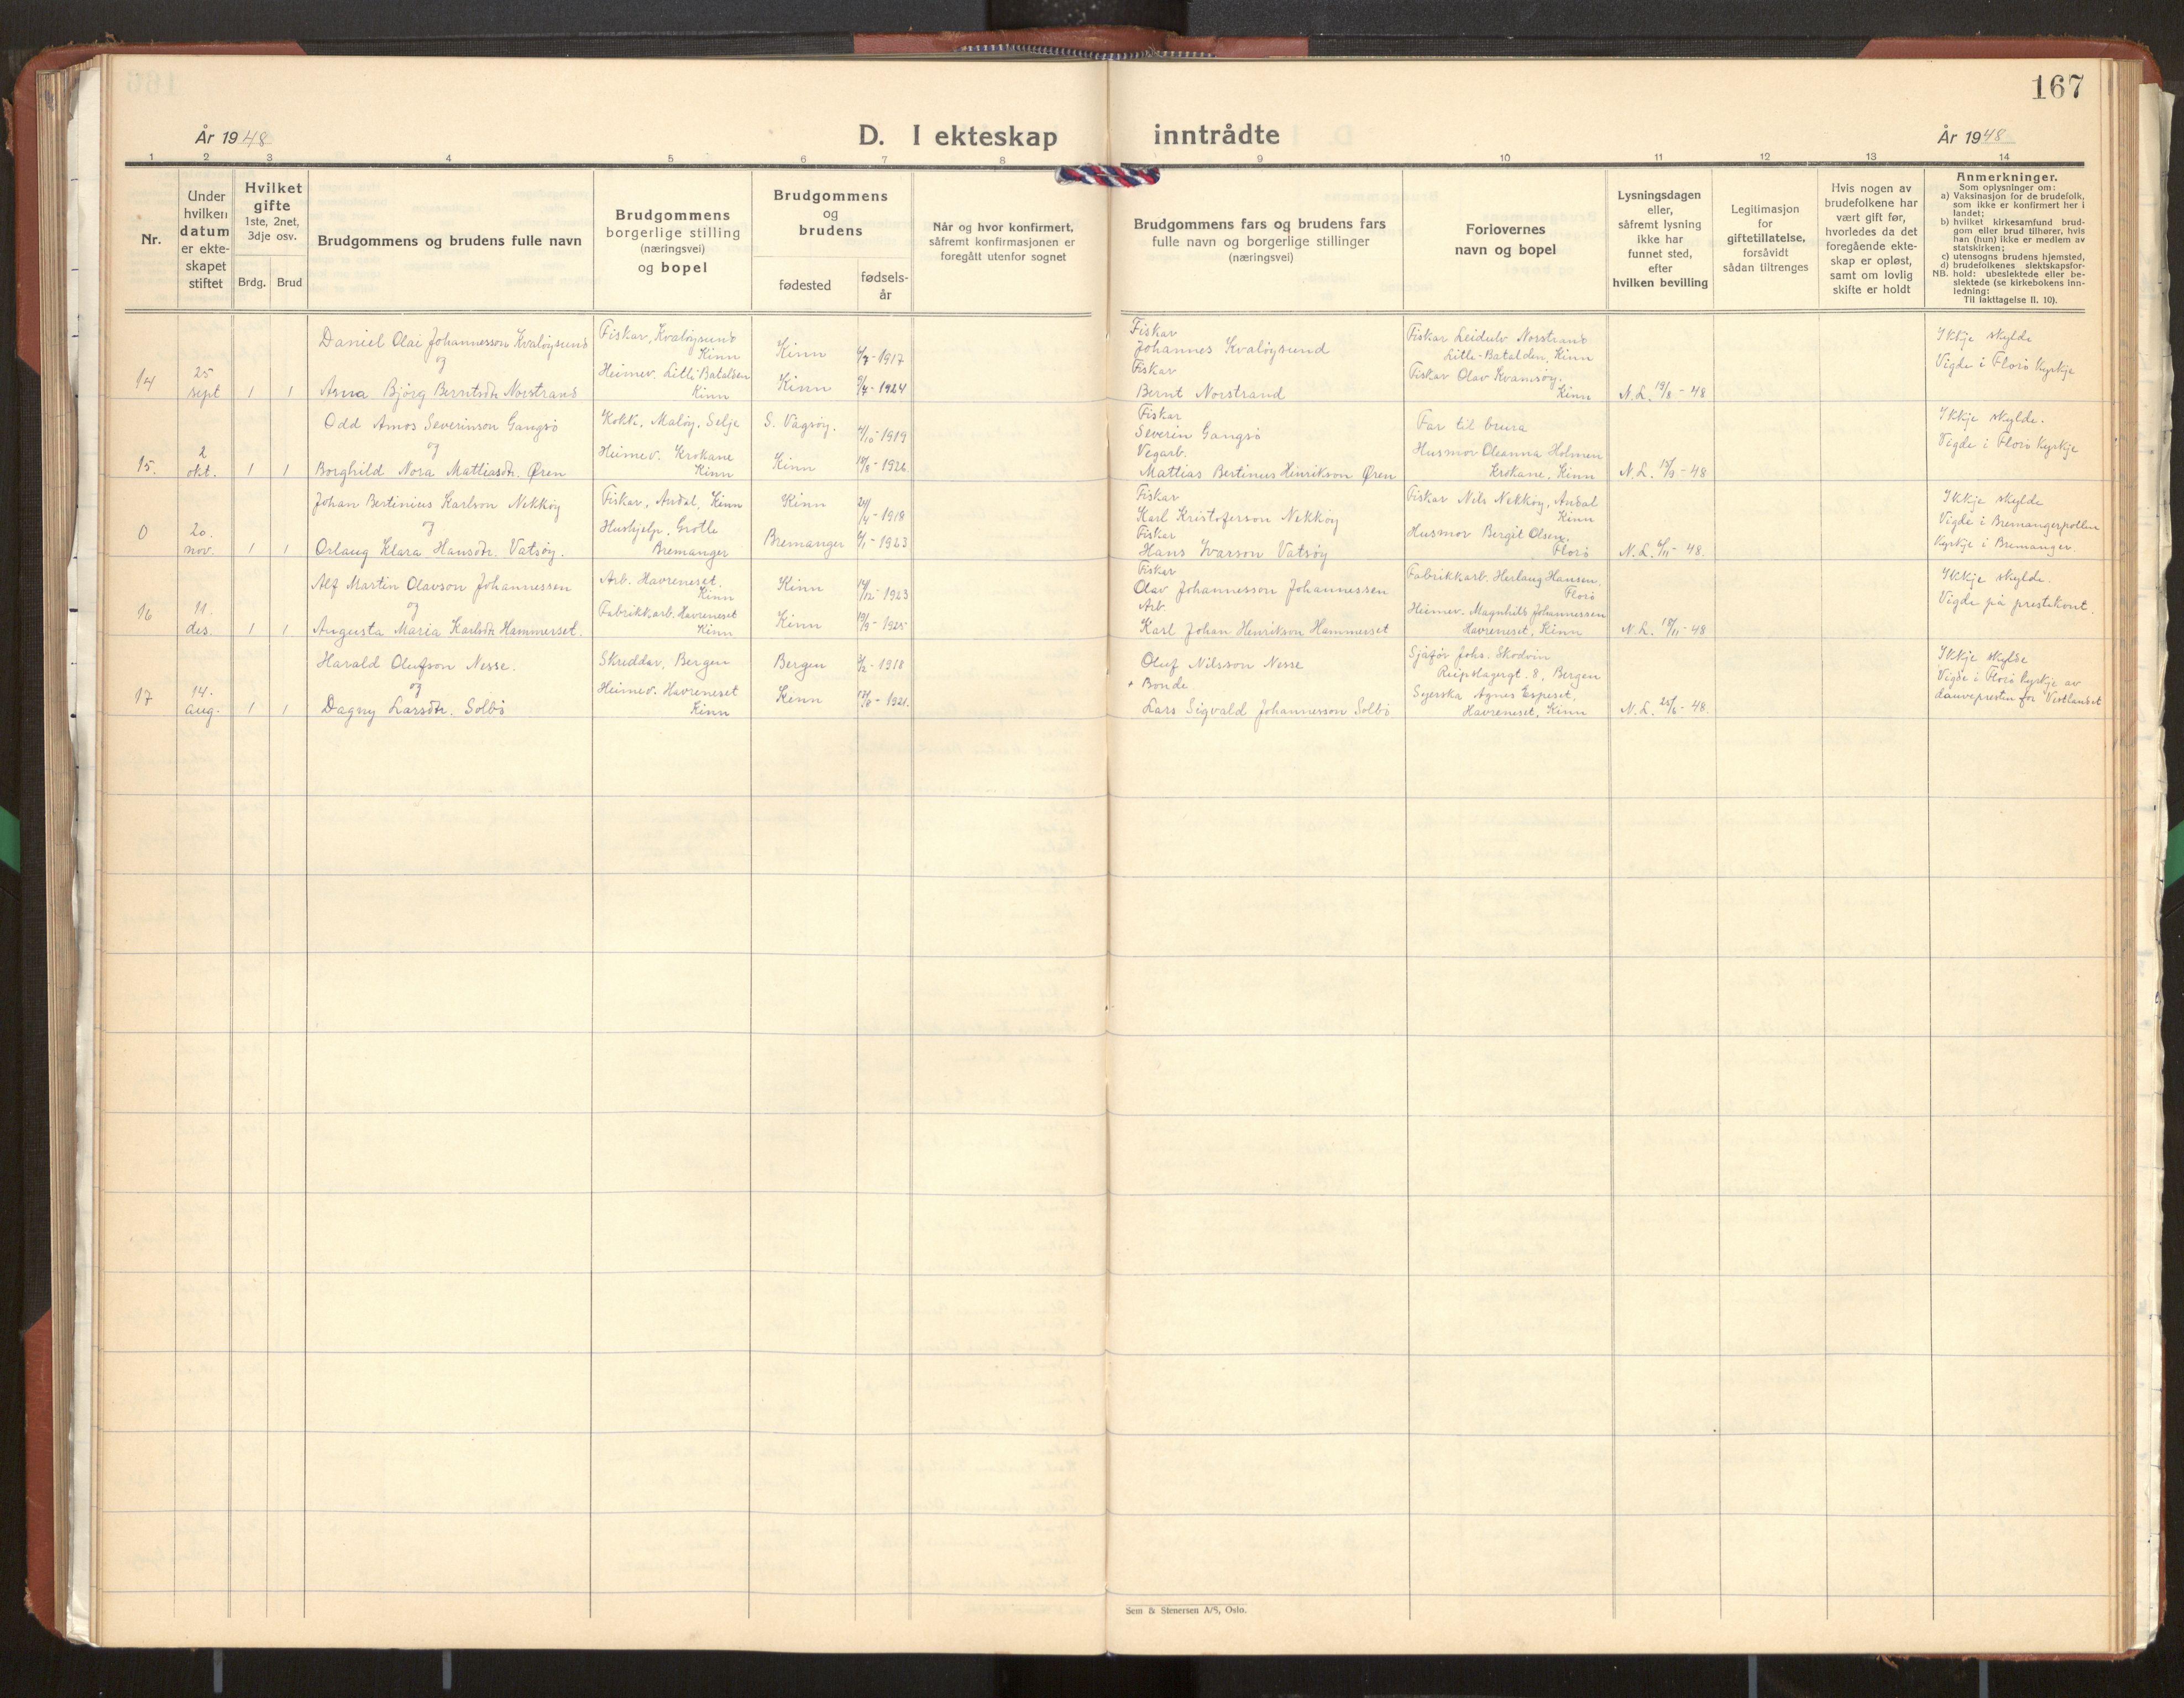 167
År 1948
D. I ekteskap inntrådte
År 1948
1 2 3 4 5 6 7 8 9 10 11 12 13 14
Nr.
Under
hvilken
datum
er ekte-
skapet
stiftet
Hvilket
gifte
1ste, 2net,
3dje osv.
Brdg. Brud
Brudgommens og brudens fulle navn
Brudgommens
borgerlige stilling
(næringsvei)
og bopel
Brudgommens
og
brudens
fødested
fødsels-
år
Når og hvor konfirmert,
såfremt konfirmasjonen er
foregått utenfor sognet
Brudgommens fars og brudens fars
fulle navn og borgerlige stillinger
(næringsvei)
Forlovernes
navn og bopel
Lysningsdagen
eller,
såfremt lysning
ikke har
funnet sted,
efter
hvilken bevilling
Legitimasjon
for
giftetillatelse,
forsåvidt
sådan tiltrenges
Hvis nogen av
brudefolkene har
vært gift før,
hvorledes da det
foregående ekte-
skap er opløst,
samt om lovlig
skifte er holdt
Anmerkninger.
Som oplysninger om:
a) Vaksinasjon for de brudefolk,
som ikke er konfirmert her i
landet;
b) hvilket kirkesamfund brud-
gom eller brud tilhører, hvis
han (hun) ikke er medlem av
statskirken;
c) utensogns brudens hjemsted,
d) brudefolkenes slektskapsfor-
NB. hold: ubeslektede eller be-
slektede (se kirkebokens inn-
ledning:
Til iakttagelse II. 10).
14
25
sept
1 1
Daniel Olai Johannesson Kvaløysund
og
Asna Bjørg Berntsdtr Norstrand
Fiskar, Kvaløysund
Kinn
Heimev. Litli Batalden
Kinn
Kinn
Kinn
/7-1917
/4-1924
Fiskar
Johannes Kvaløysund
Fiskar
Bernt Norstrand
Fiskar Leidulv Norstrand
Litle-Batalden, Kinn
Fiskar Olav Kvamsøy.
Kinn
N.L. 19/8-48
Ikkje skylde
Vigde i Florø Kyrkje
15.
2
okt.
1 1
Odd Amos Severinson Gangsø
og
Borghild Nora Mattiasdtr. Øren
Kokk, Maløy, Selje
Heimev. Krokane
Kinn
S. Vågsøy.
Kinn
/10-1919
/8-1926
Fiskar
Severin Gangsø
Vegarb.
Mattias Bertinus Henrikson Øren
Far til brura
Husmor Oleanna Holmen
Krokane, Kinn
N.L. 15/9-48
Ikkje skylde.
Vigde i Florø Kyrkje
0
20.
nov.
1 1
Johan Bertinius Karlson Nekkøy
og
Orlaug Klara Hansdtr. Vatsøy.
Fiskar, Andal, Kinn
Hushjelp, Grotle
Bremanger
Kinn
Bremanger
24/4-1918
/1-1923
Fiskar
Karl Kristoferson Nekkøy
Fiskar
Hans Ivarson Vatsøy
Fiskar Nils Nekkøy, Andal
Kinn
Husmor Bergit Olsen.
Florø
N.L. 6/11-48.
Ikkje skylde
Vigde i Bremangerpollen
Kyrkje i Bremanger.
16
11.
des.
1 1
Alf Martin Olavson Johannessen
og
Augusta Maria Karlsdtr Hammerset.
Arb. Havreneset.
Kinn
Fabrikkarb. Havreneset
Kinn
Kinn
Kinn
14/12-1923
19/9-1925
Fiskar
Olav Johannesson Johannessen
Arb.
Karl Johan Henrikson Hammerset
Fabrikkarb. Herlaug Hansen.
Florø
Heimev. Magnhild Johannessen
Havreneset, Kinn
N.L. 18/11-48
Ikkje skylde.
Vigde på prestekont.
17
14.
aug.
1 1
Harald Olufson Nesse.
og
Dagny Larsdtr. Solbø
Skreddar, Bergen
Heimev. Havreneset
Kinn
Bergen
Kinn
/2-1918
/8-1921.
Oluf Nilsson Nesse
+ Bonde
Lars Sigvald Johannesson Solbø
Sjåfør Johs. Skodvin
Reipslagergt. 8, Bergen
Syerska Agnes Espeset,
Havreneset, Kinn
N.L. 25/6-48.
Ikkje skylde
Vigde i Florø kyrkje av
dauvepresten for Vestlandet
Sem & Stenersen A/S, Oslo.